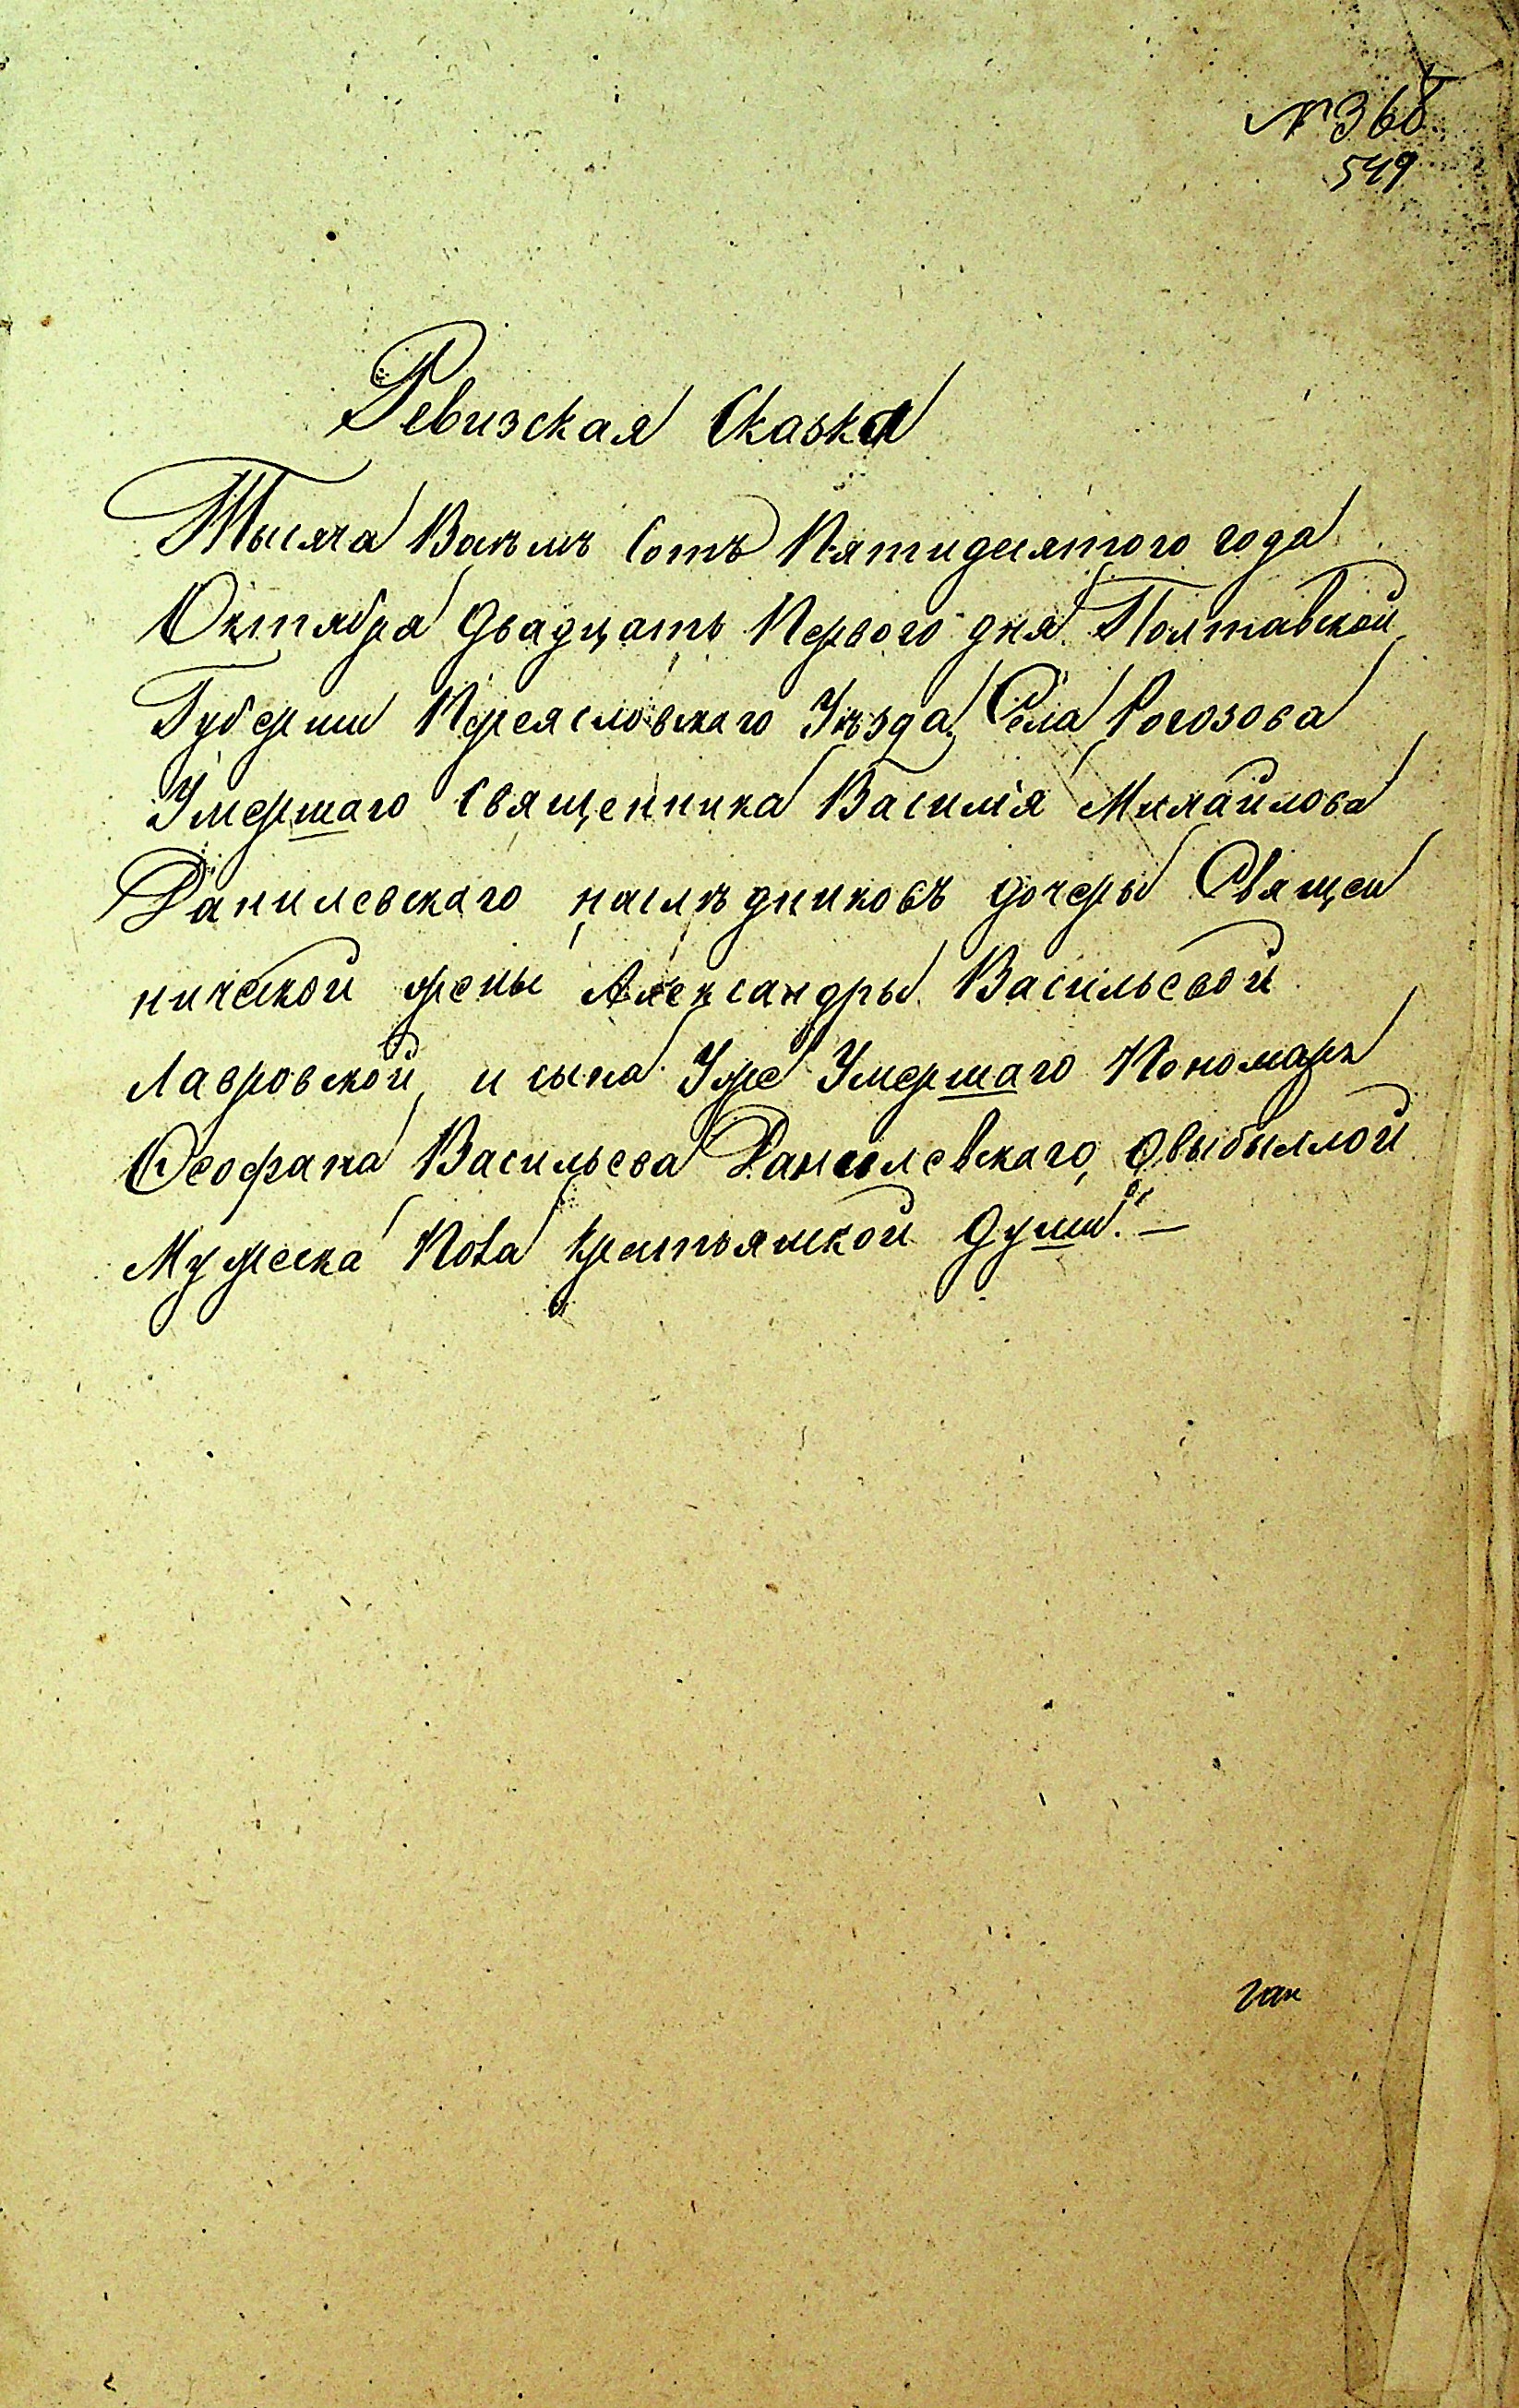 № 368
549
Ревизская Сказка
Тысяча Восѣмъ Сотъ Пятидесятого года
Октября двадцать Первого дня Полтавской
Губернии Переясловского Уѣзда, Села Рогозова
Умершаго священника Василія Михайлова
Данилевского наслѣдниковъ дочеры Священ
нической жены Александры Васильевой
Лавровской, и сына Уже Умершаго Пономаря
Феофана Васильева Данилевского, овыбылой
Мужеска Пола крестьянской души. —